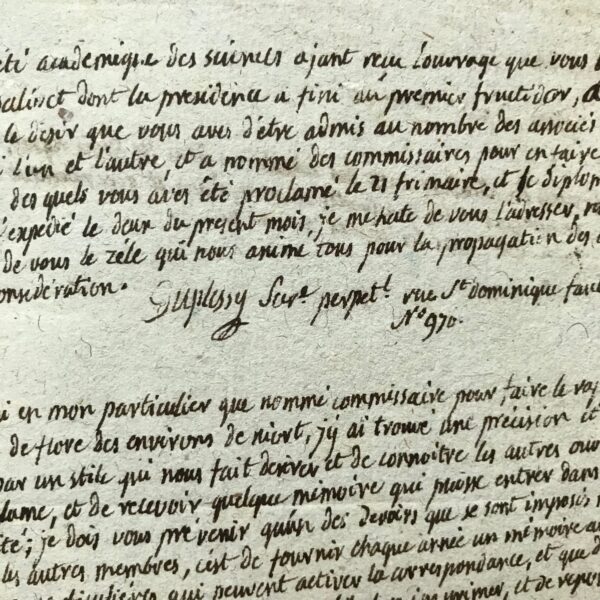 été academique des sciences ajant recu l'ouvrage que vous
dont la presidence a fini au premier fructidor,
le désir que vous aves d'être admis au nombre des associés
l'un et l'autre, et a nommé des commissaires pour en faire
des quels vous aves été proclamé le 21 frimaire, et le diplom
expedié le deux du present mois, je me hate de vous l'adresser,
de vous le zéle qui nous anime tous pour la propagation des
onsidération.
Duplessy Secr.e perpet.l rue St dominique faub
No 970.
i en mon particulier que nommé commissaire pour faire le rap
de flore des environs de niort, j'y ai trouvé une précision et
par un stile qui nous fait desirer et de connoitre les autres ouv
dame, et de recevoir quelque mémoire qui puisse entrer dans
été; je dois vous prévenir qu'un des devoirs que se sont imposés
les autres membres, c'est de fournir chaque année un mémoire au
qui peuvent activer la correspondance, et que
imprimer, et de repon